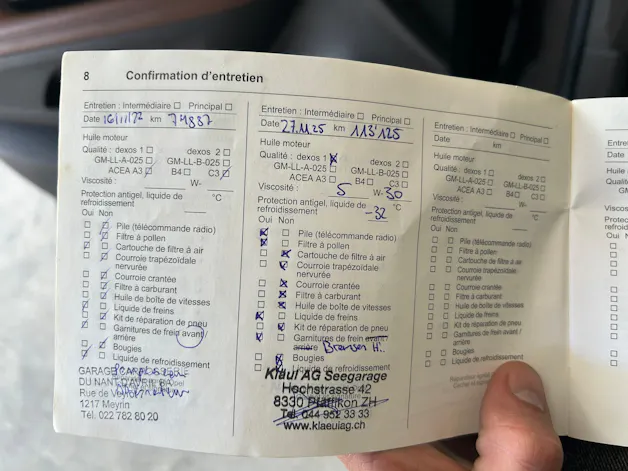 8 Confirmation d'entretien
Entretien : Intermédiaire Principal
Date 16/11/22 km 74887
Huile moteur
Qualité : dexos 1 dexos 2
GM-LL-A-025 GM-LL-B-025
ACEA A3 B4 C3
Viscosité : W- °C
Protection antigel, liquide de
refroidissement
Oui Non
Pile (télécommande radio)
Filtre à pollen
Cartouche de filtre à air
Courroie trapézoïdale
nervurée
Courroie crantée
Filtre à carburant
Huile de boîte de vitesses
Liquide de freins
Kit de réparation de pneu
Garnitures de frein avant/
arrière
Bougies
Liquide de refroidissement
GARAGE
DU NANT-D'AVRIL SA
Rue de Veyrot
1217 Meyrin
Tél. 022 782 80 20
Entretien : Intermédiaire Principal
Date 27.11.25 km 113'125
Huile moteur
Qualité : dexos 1 dexos 2
GM-LL-A-025 GM-LL-B-025
ACEA A3 B4 C3
Viscosité : 5 W- 30
Protection antigel, liquide de °C
refroidissement -32
Oui Non
Pile (télécommande radio)
Filtre à pollen
Cartouche de filtre à air
Courroie trapézoïdale
nervurée
Courroie crantée
Filtre à carburant
Huile de boîte de vitesses
Liquide de freins
Kit de réparation de pneu
Garnitures de frein avant/
arrière Bremsen H.
Bougies
Liquide de refroidissement
Klaui AG Seegarage
Hochstrasse 42
8330 Pfäffikon ZH
Tel. 044 952 33 33
www.klaeuiag.ch
Entretien : Intermédiaire Principal
Date km
Huile moteur
Qualité : dexos 1 dexos 2
GM-LL-A-025 GM-LL-B-025
ACEA A3 B4 C3
Viscosité : W-
Protection antigel, liquide de °C
refroidissement
Oui Non
Pile (télécommande radio)
Filtre à pollen
Cartouche de filtre à air
Courroie trapézoïdale
nervurée
Courroie crantée
Filtre à carburant
Huile de boîte de vitesses
Liquide de freins
Kit de réparation de pneu
Garnitures de frein avant /
arrière
Bougies
Liquide de refroidissement
Entre
Date
Huile m
Qualité
Viscos
Protec
refroid
Oui N